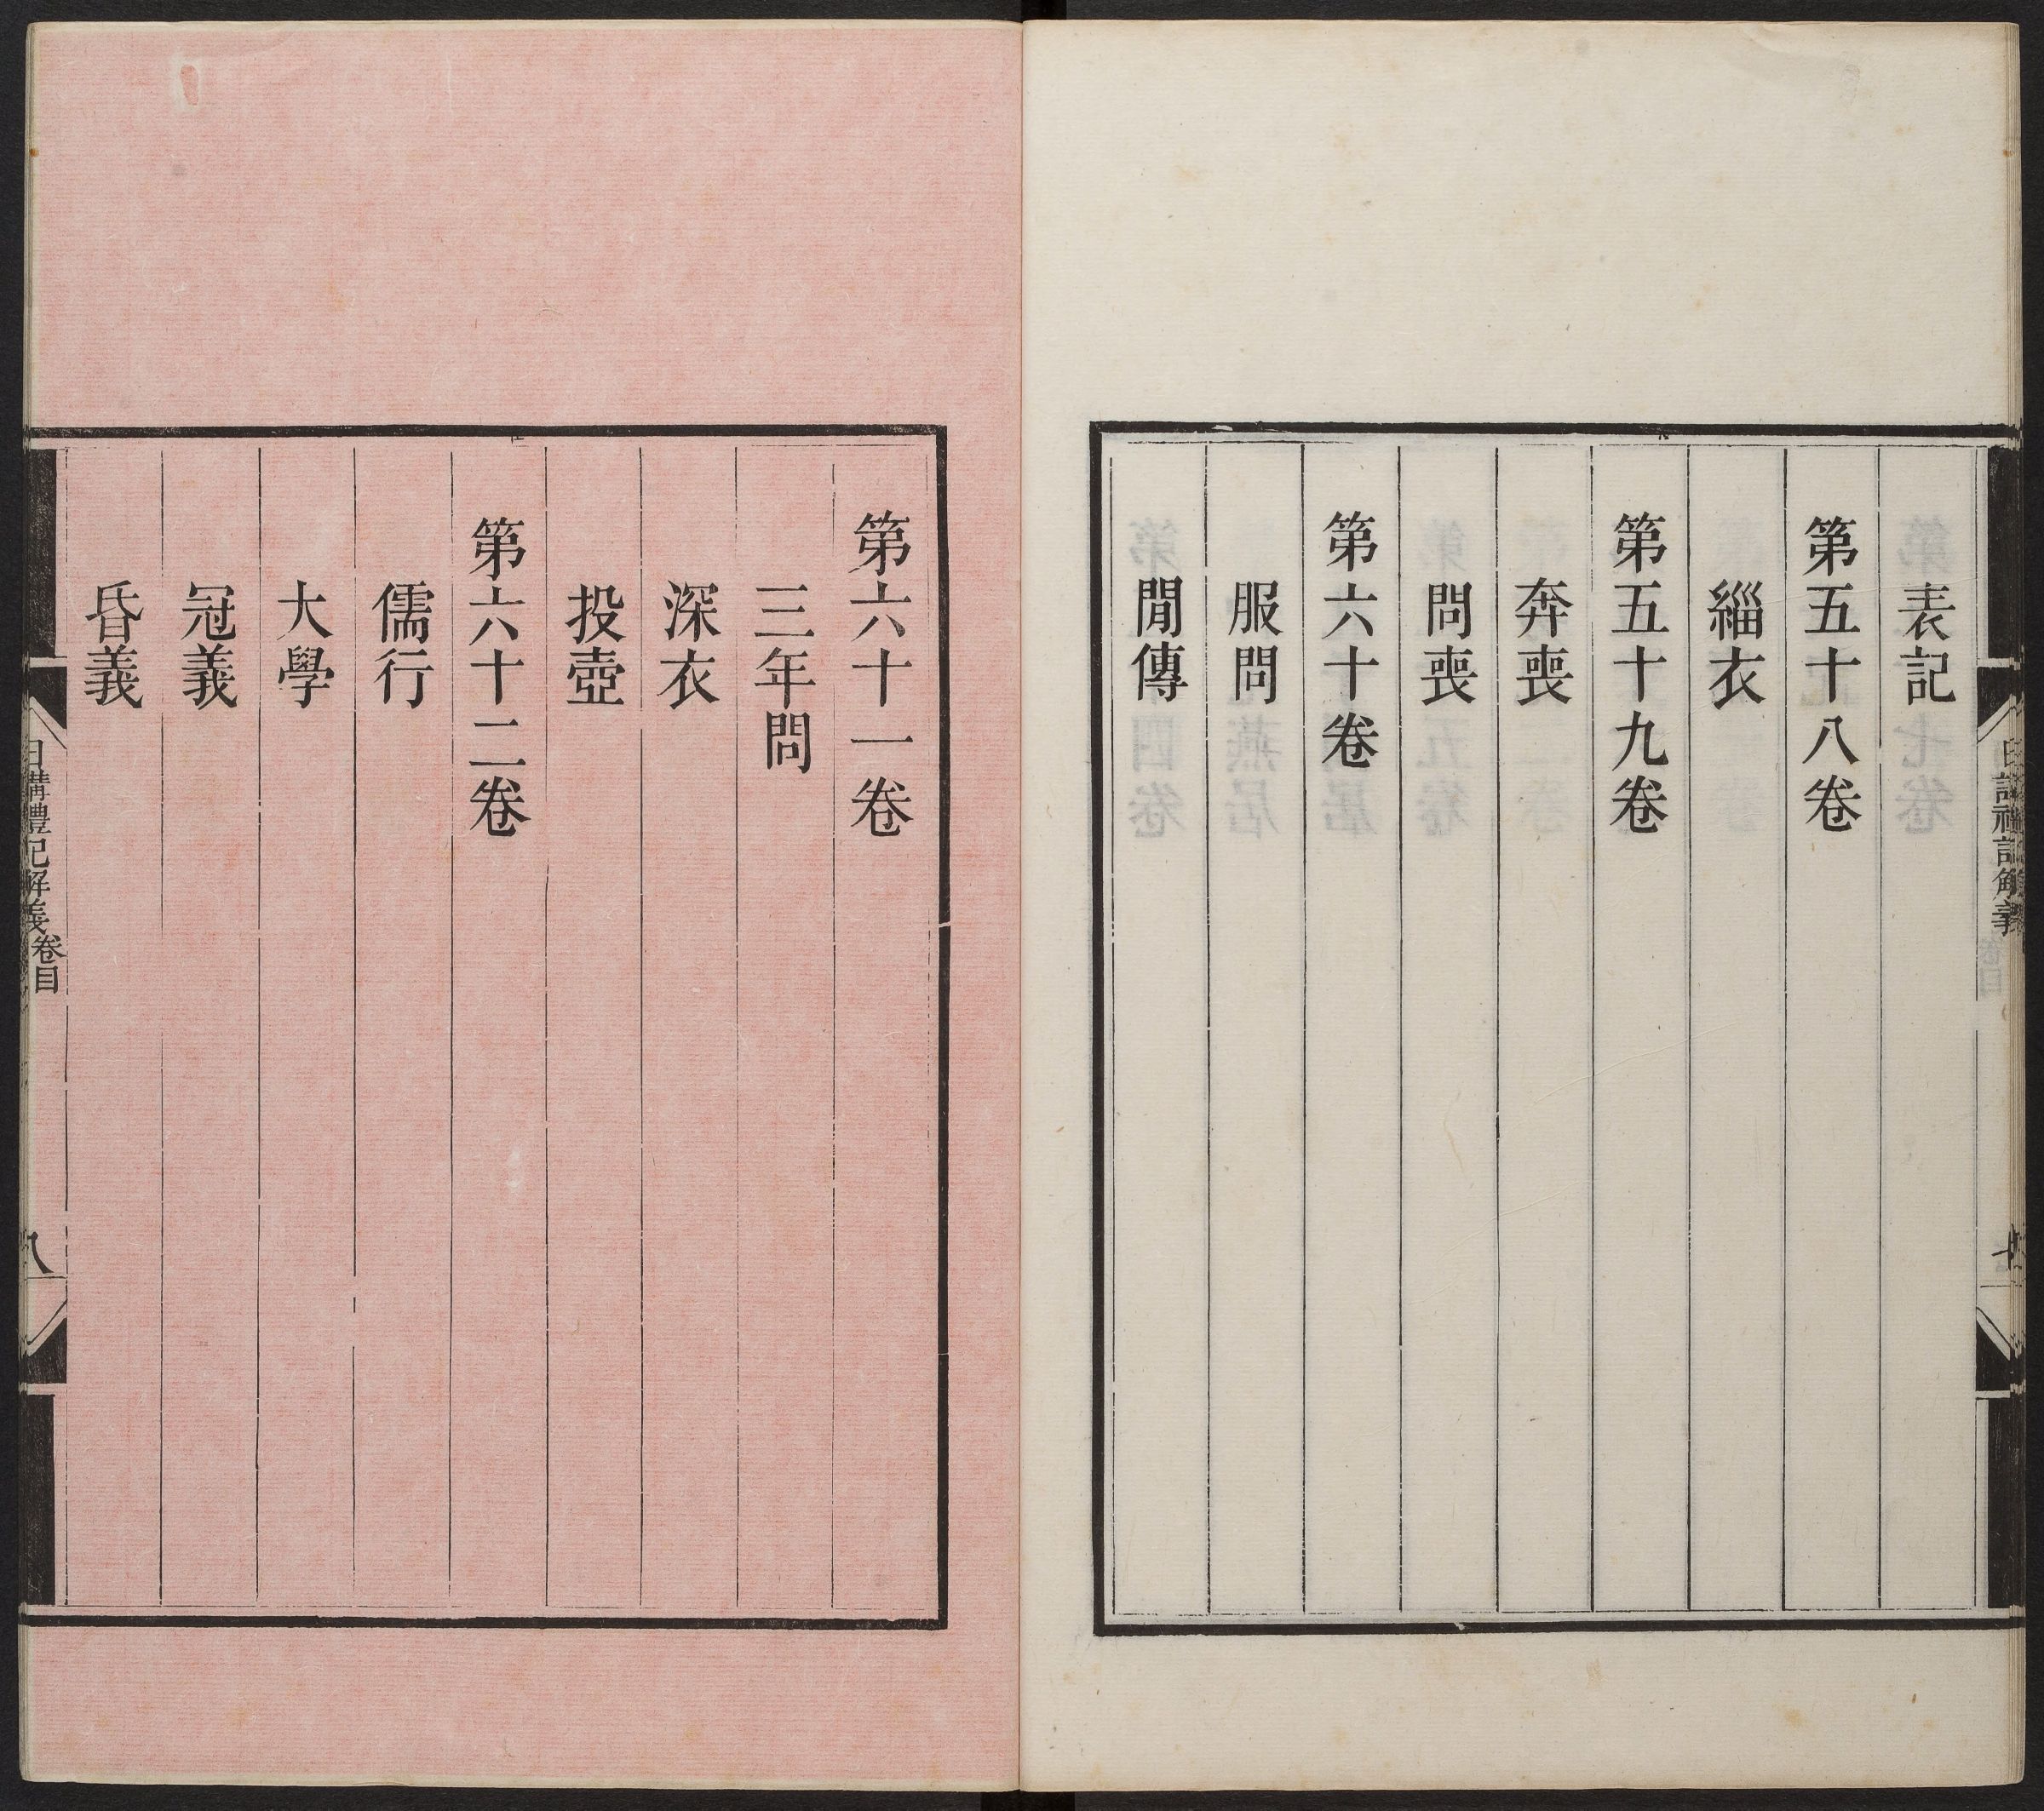 表記
第五十八卷
緇衣
第五十九卷
奔喪
問喪
第六十卷
服問
閒傳
日講禮記解義
第六十一卷
三年問
深衣
投壺
第六十二卷
儒行
大學
冠義
昏義
日講禮記解義卷目
八